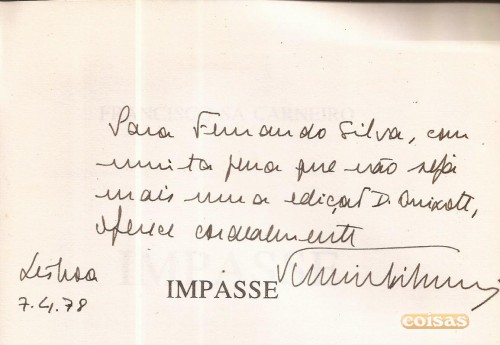 FRANCISCO SÁ CARNEIRO
Para Fernando Silva, com
muita pena que não seja
mais uma edição D. Quixote,
oferece cordealmente
Lisboa
7.4.78
IMPASSE
coisas